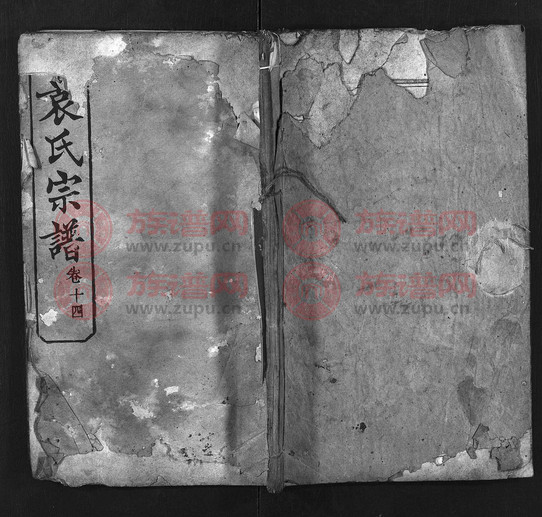 袁氏宗譜
卷十四
族谱网
www.zupu.cn
族谱网
www.zupu.cn
族谱网
www.zupu.cn
族谱网
www.zupu.cn